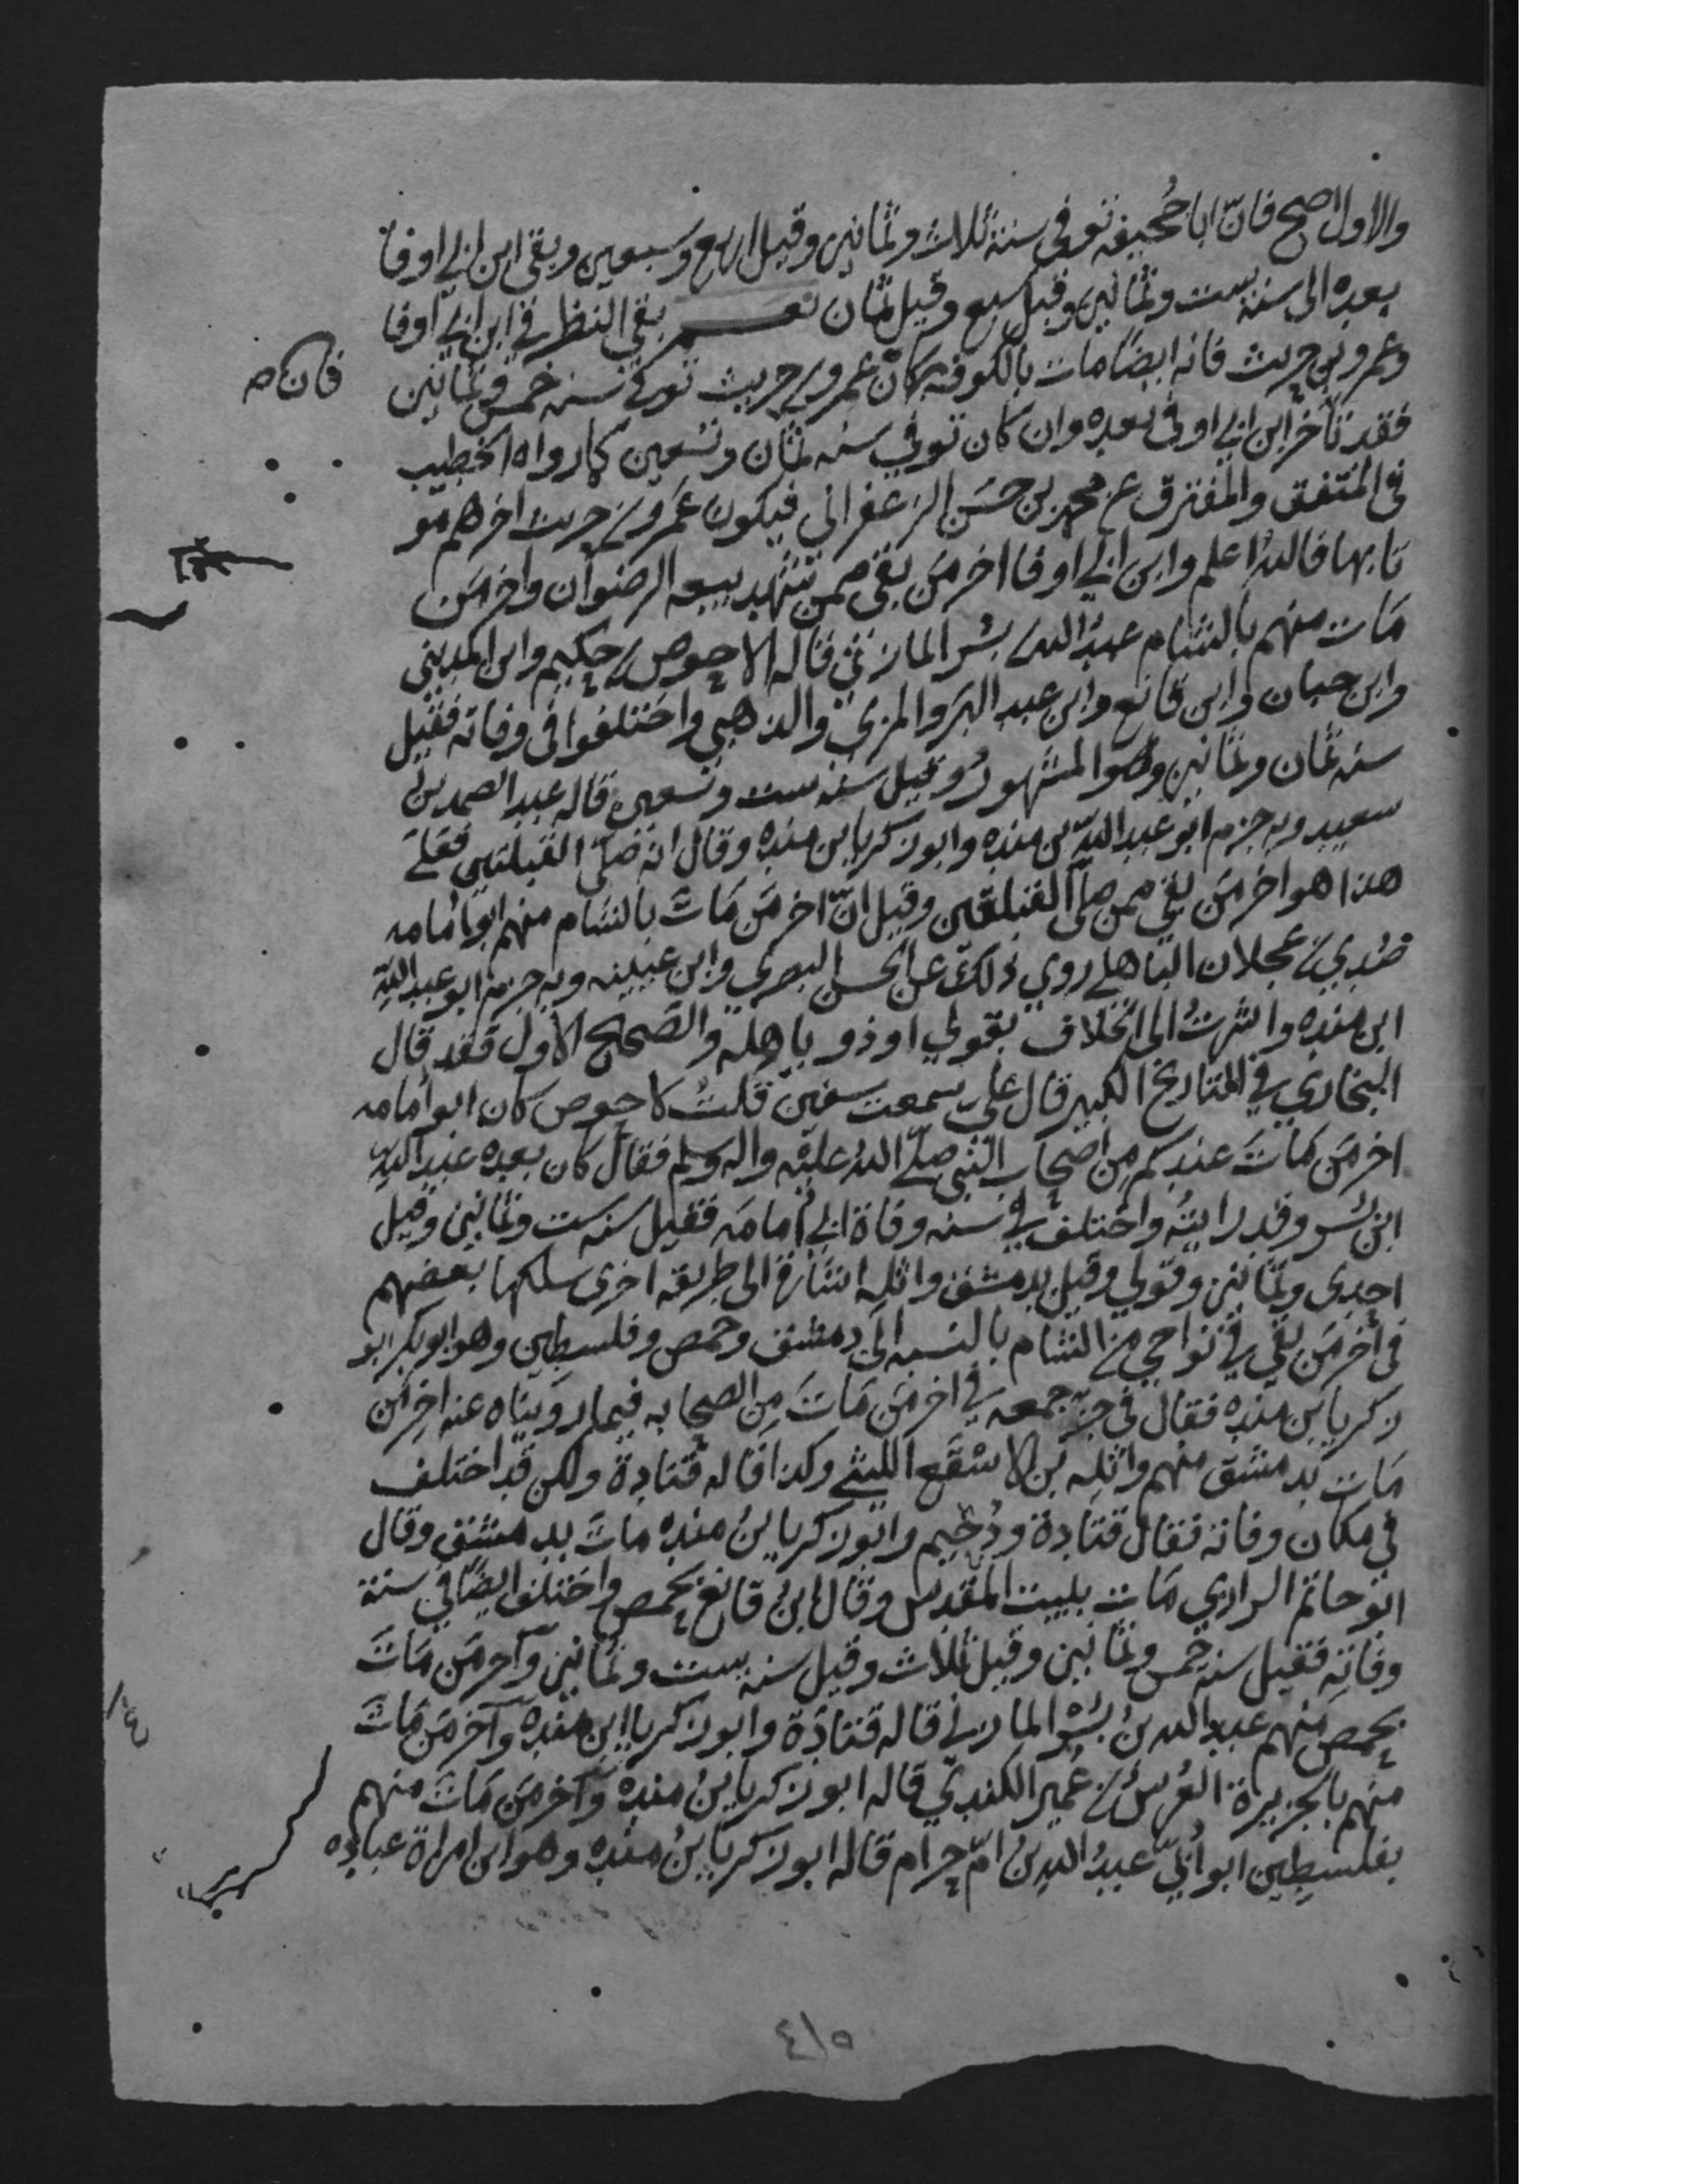 والاول اصح فانّ ابا جُحيفه توفى سنة ثلاث وثمانين وقيل اربع وسبعين وبقى ابن ابي اوفا
بعده الى سنه ست وثمانين وقيل سبع وقيل ثمان نعم بقي النظر في ابن ابي اوفا
وعمرو بن حريث فانه ايضًا مات بالكوفه كان عمرو بن حريث توفي سنه خمس وثمانين
فان صح
فقد تأخر ابن ابي اوفى بعده وان كان توفي سنه ثمان وتسعين كما رواه الخطيب
في المتفق والمفترق عن محمد بن حسَن الزعفراني فيكون عَمرو بن حريث اخرهم مو
تا بها فالله اعلم وابن ابي اوفا اخر مَن بقى ممن شهد بيعه الرضوان واخر مَن
مَات منهم بالشام عبدُ الله بن بسْر المازني قاله الاحوص بن حكيم وابن المديني
وابن حبان وابن قانع وابن عبد البر والمزيّ والذهبي واختلفوا في وفاته فقيل
سنه ثمان وثمانين وهو المشهور وقيل سنه ست وتسعين قاله عبد الصمد بن
سعيد وبه جزم ابو عبد الله بن منده وابو زكريا بن منده وقال انه صَلّى القبلتين فعَلَى
هذا هو اخر مَن بقي ممن صلّى القبلتين وقيل انّ اخر مَن مَاتَ بالشام منهم ابو اُمامه
صُدي بن عجلان الباهلي روي ذلك عن الحسن البصري وابن عيينه وبه جزم ابو عبد الله
ابن منده واشرتُ الى الخلاف بقولي او ذو باهله والصّحيح الاول فقد قال
البخاري في التاريخ الكبير قال علي سمعت سفين قلتُ لاحوص كان ابو اُمامه
اخر مَن مَاتَ عندكم مِن اصحاب النّبي صلّى الله عليْه واله وسلم فقال كان بعده عبد الله
ابن بُسر وقد رايتُه واختلف في سنه وفاة ابي اُمامَه فقيل سنه ست وثمانين وقيل
احدى وثمانين وقولي وقيل بدمشق واثله اشارة الى طريقه اخرى سلكها بعضهم
في اخر مَن بقي في نواحي من الشام بالنسبه الى دمشق وحمص وفلسطين وهو ابو بكر ابو
زكريا بن منده فقال في جزء جمعه في اخر مَن مَاتَ مِن الصحابه فيما رويناه عنه اخر مَن
مَات بدمشق منهم واثله بن الاسْقَع الليثي وكذا قاله قَتادة ولكن قد اختلف
في مكان وفاته فقال قتادة ودُحيم وابو زكريا بنُ منده ماتَ بدمشق وقال
ابو حاتم الرازي مَات ببيت المقدس وقال ابنُ قانع بحمص واختلفوا ايضًا في سنة
وفاته فقيل سنه خمس وثمانين وقيل ثلاث وقيل سنه ست وثمانين وآخر مَن مَاتَ
بحمص منهم عبد الله بنُ بُسْر المازني قاله قتادَة وابو زكريا ابن منده وآخر مَن مَاتَ
منهم بالجزيرة العُرسُ بن عُمير الكنديّ قاله ابو زكريا بنُ منده وآخر مَن مَاتَ منهم
بفلسطين ابو اُبيّ عبدُ الله بن امّ حرام قاله ابو زكريا بنُ منده وهو ابن امراة عباده
٤١٥